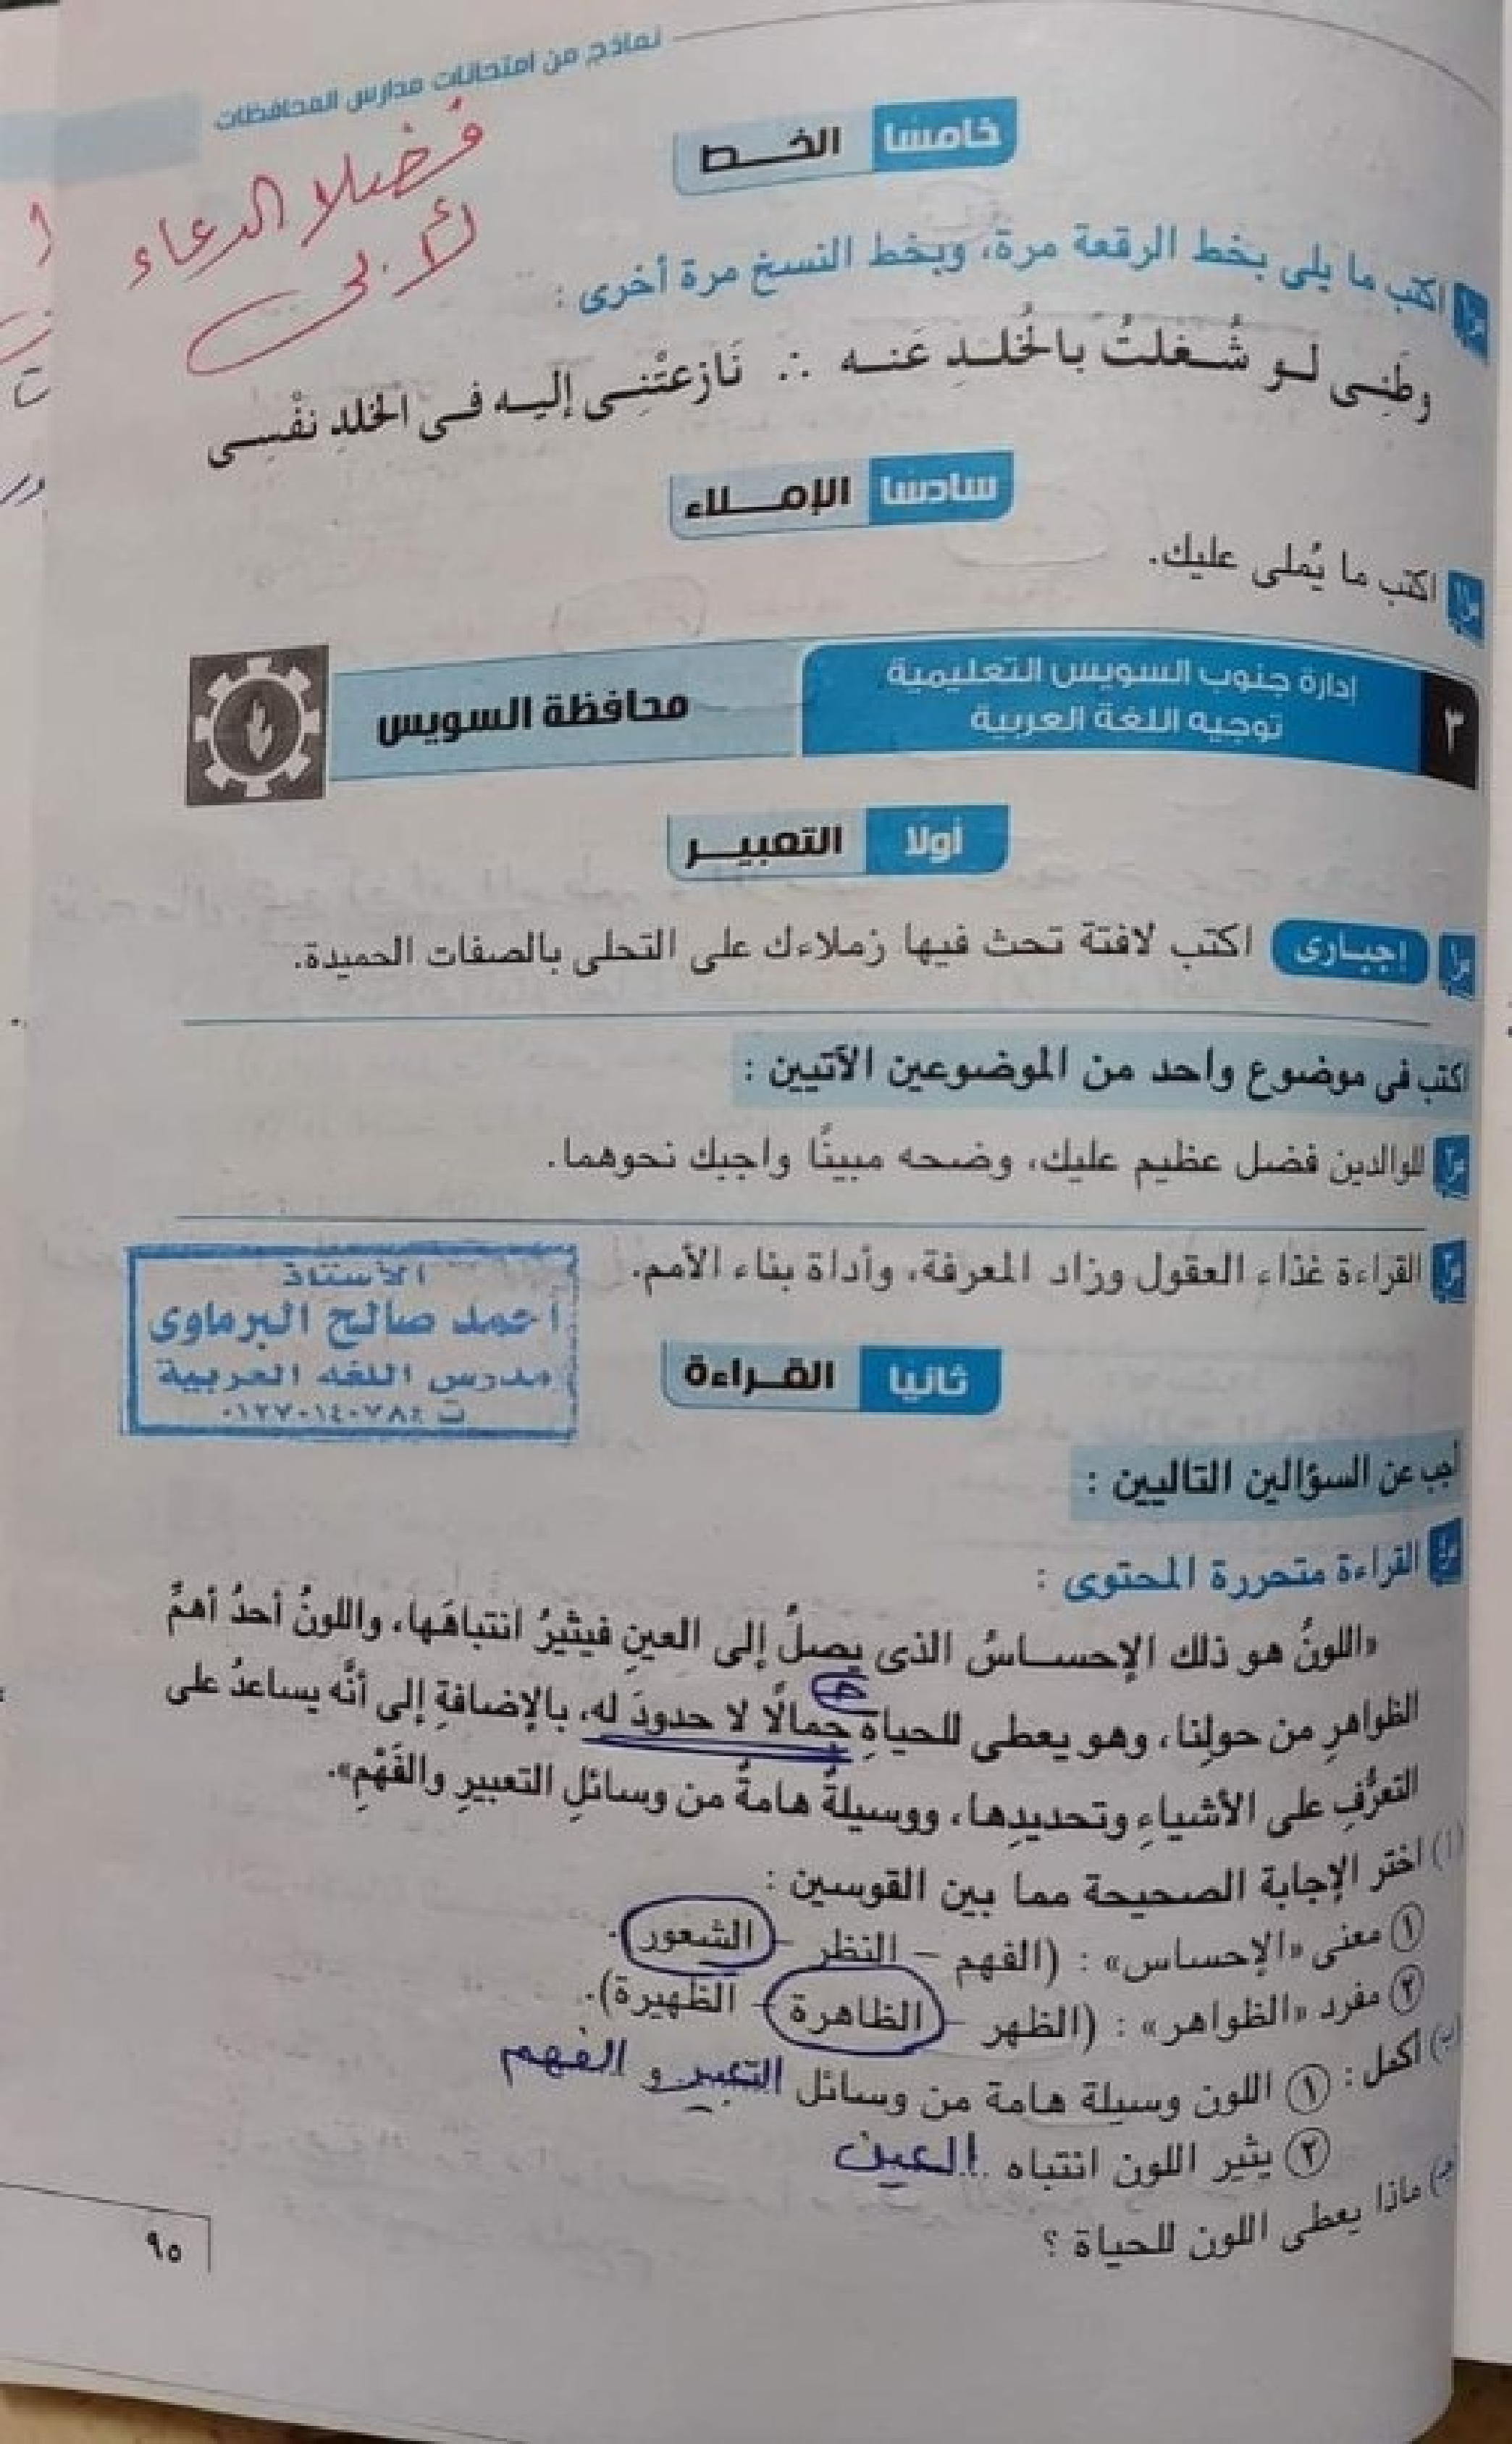 نماذج من امتحانات مدارس المحافظات
فضلا الدعاء
لأبى
خامسا الخــط
س١ اكتب ما يلى بخط الرقعة مرة، وبخط النسخ مرة أخرى :
وطَنِـى لـو شُـغلتُ بالخُلـدِ عَنـه ∴ نَازعتْنِـى إليـه فـى الخلدِ نفْسِـى
سادسا الإمــلاء
اكتب ما يُملى عليك.
٣ إدارة جنوب السويس التعليمية
توجيه اللغة العربية
محافظة السويس
أولا التعبيــر
س١ إجبـارى اكتب لافتة تحث فيها زملاءك على التحلى بالصفات الحميدة.
اكتب فى موضوع واحد من الموضوعين الآتيين :
س٢ للوالدين فضل عظيم عليك، وضحه مبينًا واجبك نحوهما.
س٣ القراءة غذاء العقول وزاد المعرفة، وأداة بناء الأمم.
الأستاذ
أحمد صالح البرماوى
مدرس اللغه العربية
ت ٠١٢٧٠١٤٠٧٨٤
ثانيا القــراءة
أجب عن السؤالين التاليين :
س٤ القراءة متحررة المحتوى :
«اللونُ هو ذلك الإحســاسُ الذى يصلُ إلى العينِ فيثيرُ انتباهَها، واللونُ أحدُ أهمِّ
الظواهرِ من حولِنا، وهو يعطى للحياةِ جمالًا لا حدودَ له، بالإضافةِ إلى أنَّه يساعدُ على
ج
التعرُّفِ على الأشياءِ وتحديدِها، ووسيلةٌ هامةٌ من وسائلِ التعبيرِ والفَهْمِ».
(أ) اختر الإجابة الصحيحة مما بين القوسين :
① معنى «الإحساس» : (الفهم – النظر – الشعور).
② مفرد «الظواهر» : (الظهر – الظاهرة – الظهيرة).
(ب) أكمل : ① اللون وسيلة هامة من وسائل التعبير و الفهم
② يثير اللون انتباه .العين
(جـ) ماذا يعطى اللون للحياة ؟
٩٥